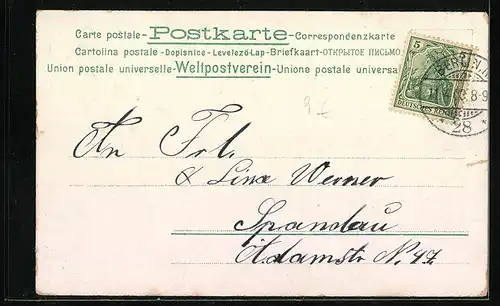 Carte postale - Postkarte - Correspondenzkarte
Cartolina postale - Dopisnice - Levelező-Lap - Briefkaart - ОТКРЫТОЕ ПИСЬМО
Union postale universelle - Weltpostverein - Unione postale universa
5
DEUTSCHES REICH
BERLIN
8-9
* 28 *
An Frl.
Lina Werner
Spandau
Adamstr N. 47.